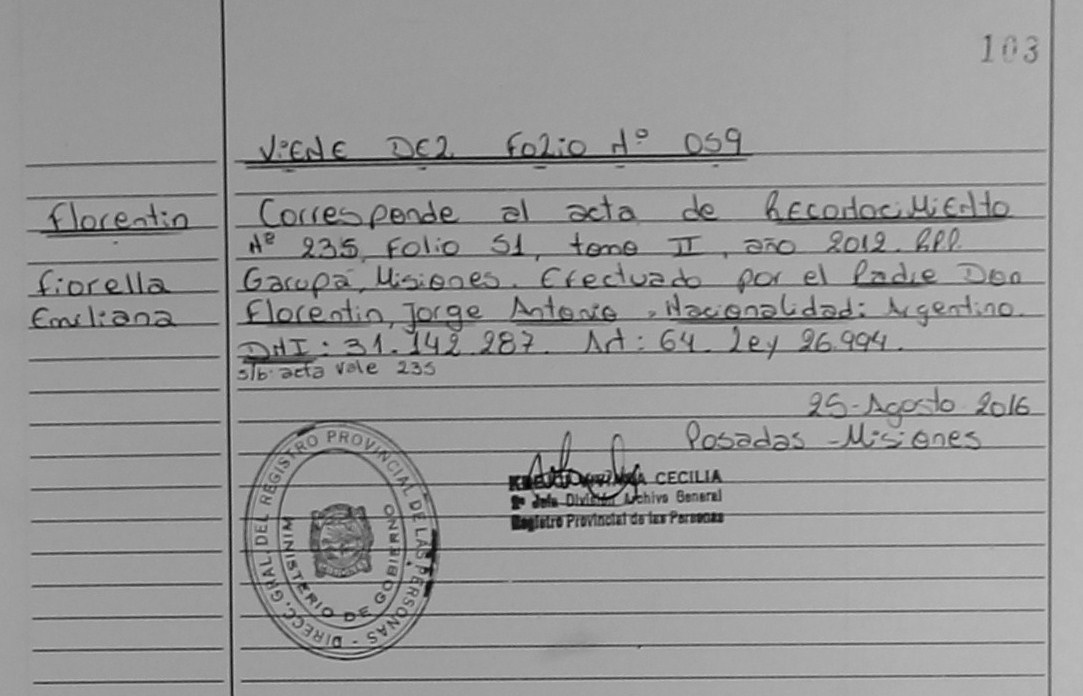 103
VIENE DEL FOLIO Nº 059
Florentin
Corresponde al acta de RECONOCIMIENTO
Nº 235, Folio 51, tomo II, año 2012. R.P.P.
Fiorella
Garupá, Misiones. Efectuado por el Padre Don
Emiliana
Florentin, Jorge Antonio, Nacionalidad: Argentino.
DNI: 31.142.287. Art: 64. Ley 26.994.
s/b: acta vale 235
25-Agosto-2016
Posadas - Misiones
CECILIA
2º Jefe División Archivo General
Registro Provincial de las Personas
DIRECC. GRAL. DEL REGISTRO PROVINCIAL DE LAS PERSONAS -
MINISTERIO DE GOBIERNO